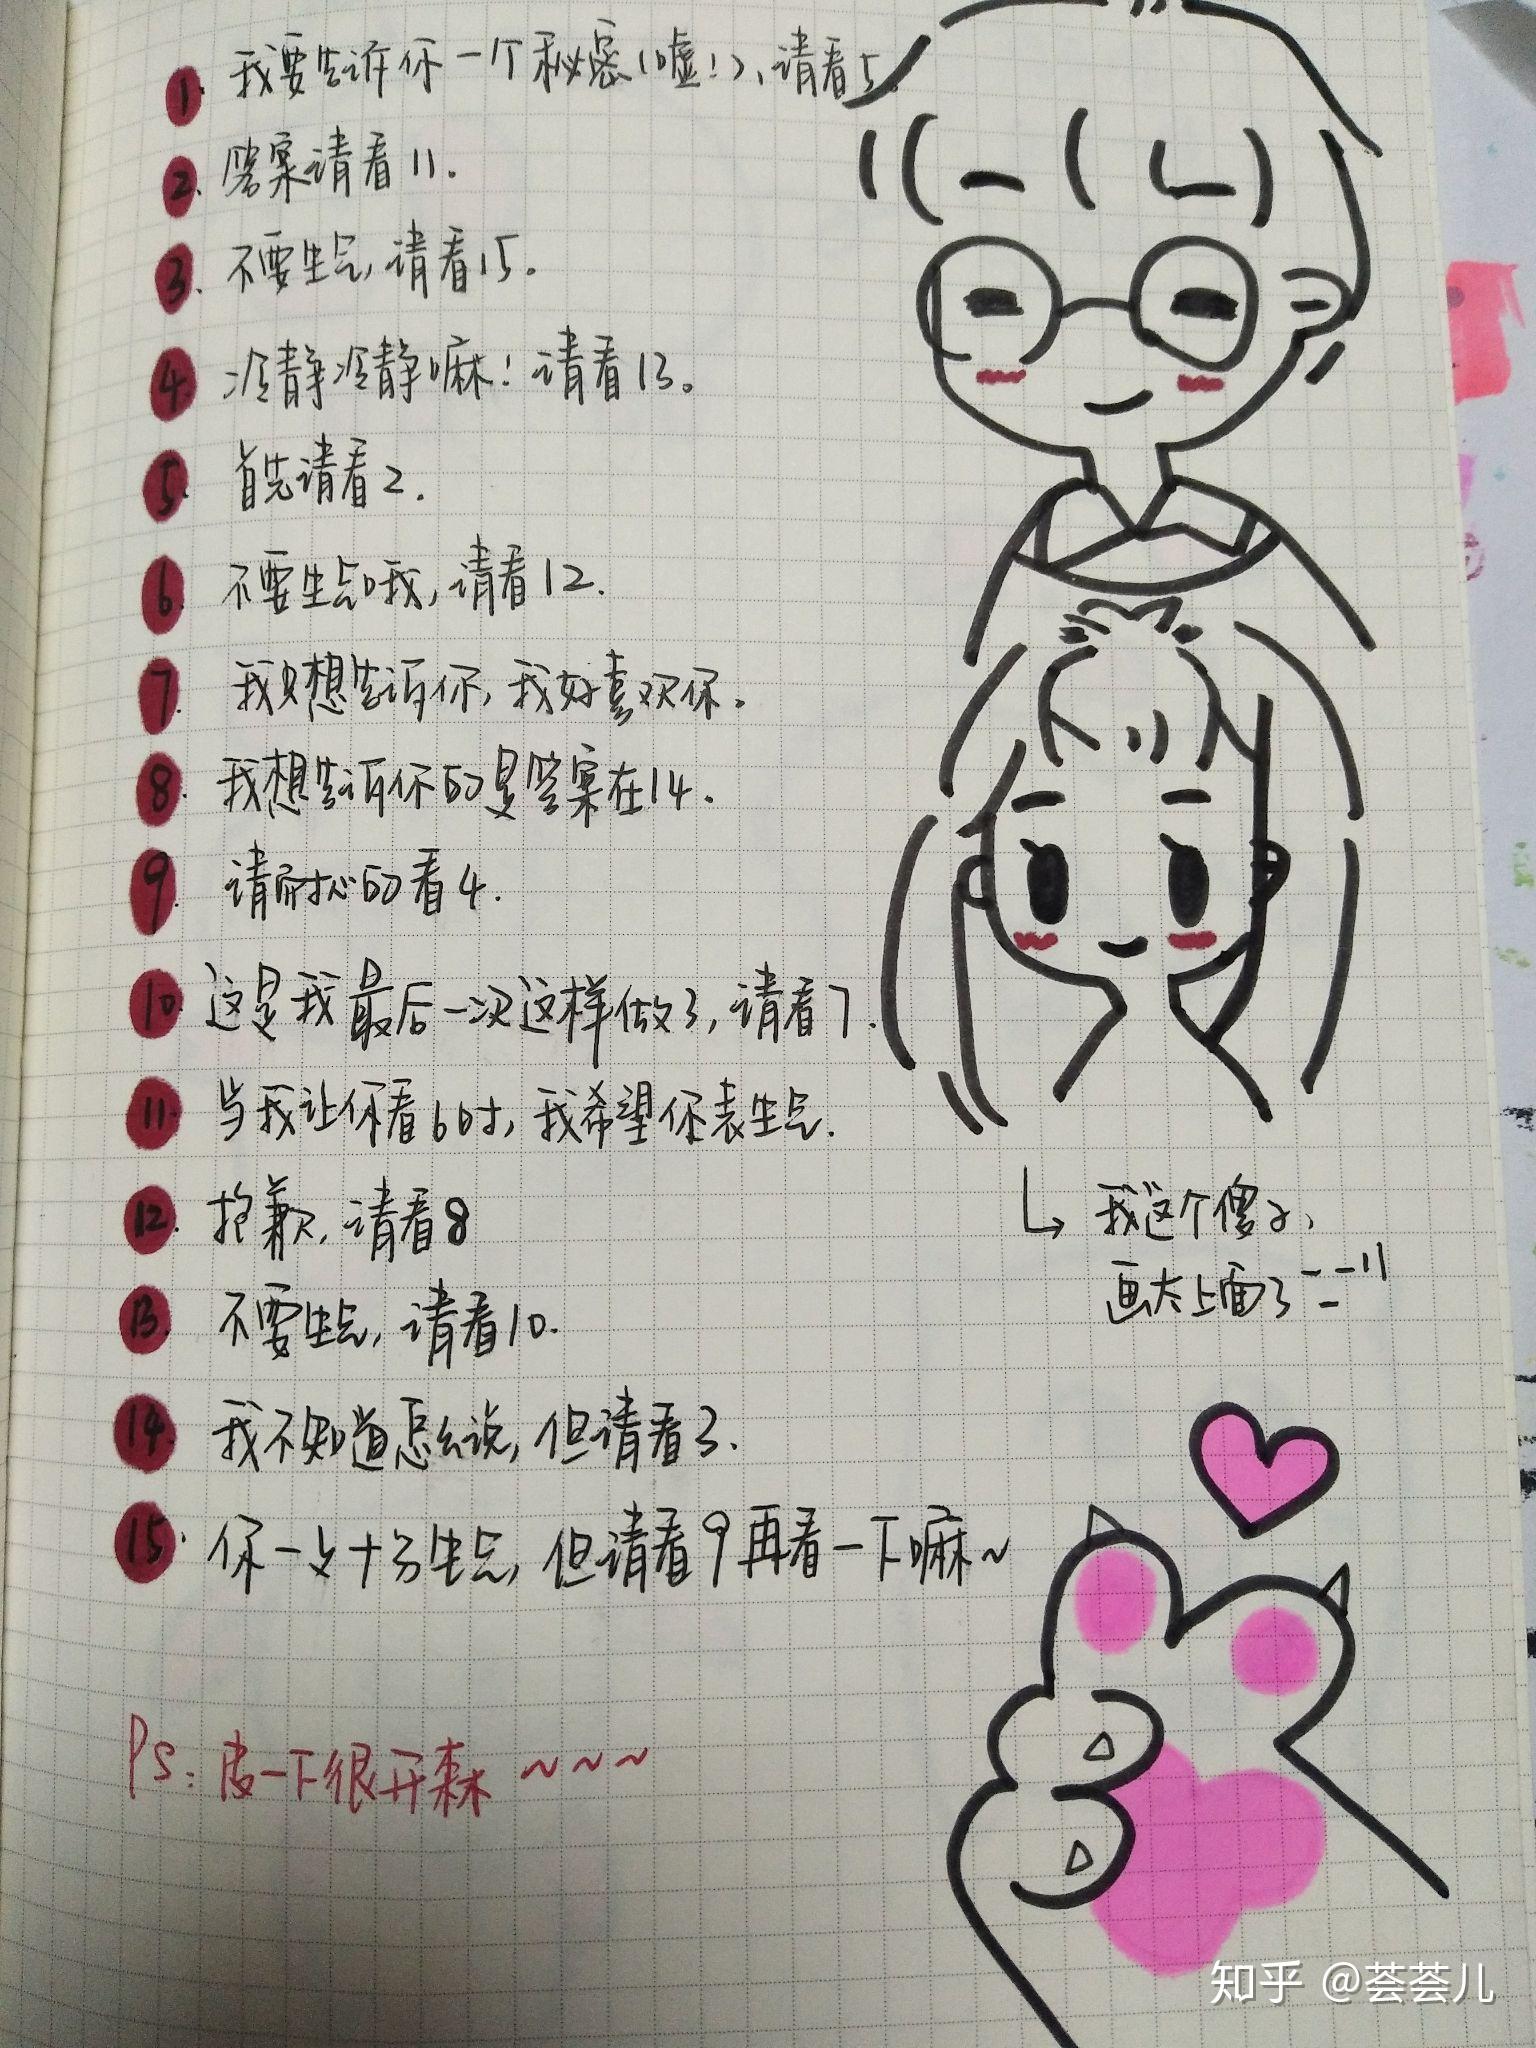 1. 我要告诉你一个秘密(嘘!),请看5.
2. 答案请看11.
3. 不要生气,请看15.
4. 冷静冷静嘛!请看13.
5. 首先请看2.
6. 不要生气哦,请看12.
7. 我只想告诉你,我好喜欢你.
8. 我想告诉你的是答案在14.
9. 请耐心的看4.
10. 这是我最后一次这样做了,请看7.
11. 当我让你看6时,我希望你表生气.
12. 抱歉,请看8
13. 不要生气,请看10.
14. 我不知道怎么说,但请看3.
15. 你一定十分生气,但请看9再看一下嘛~
我这个傻子,
画大上面了
Ps: 皮一下很开森~~~
知乎 @荟荟儿